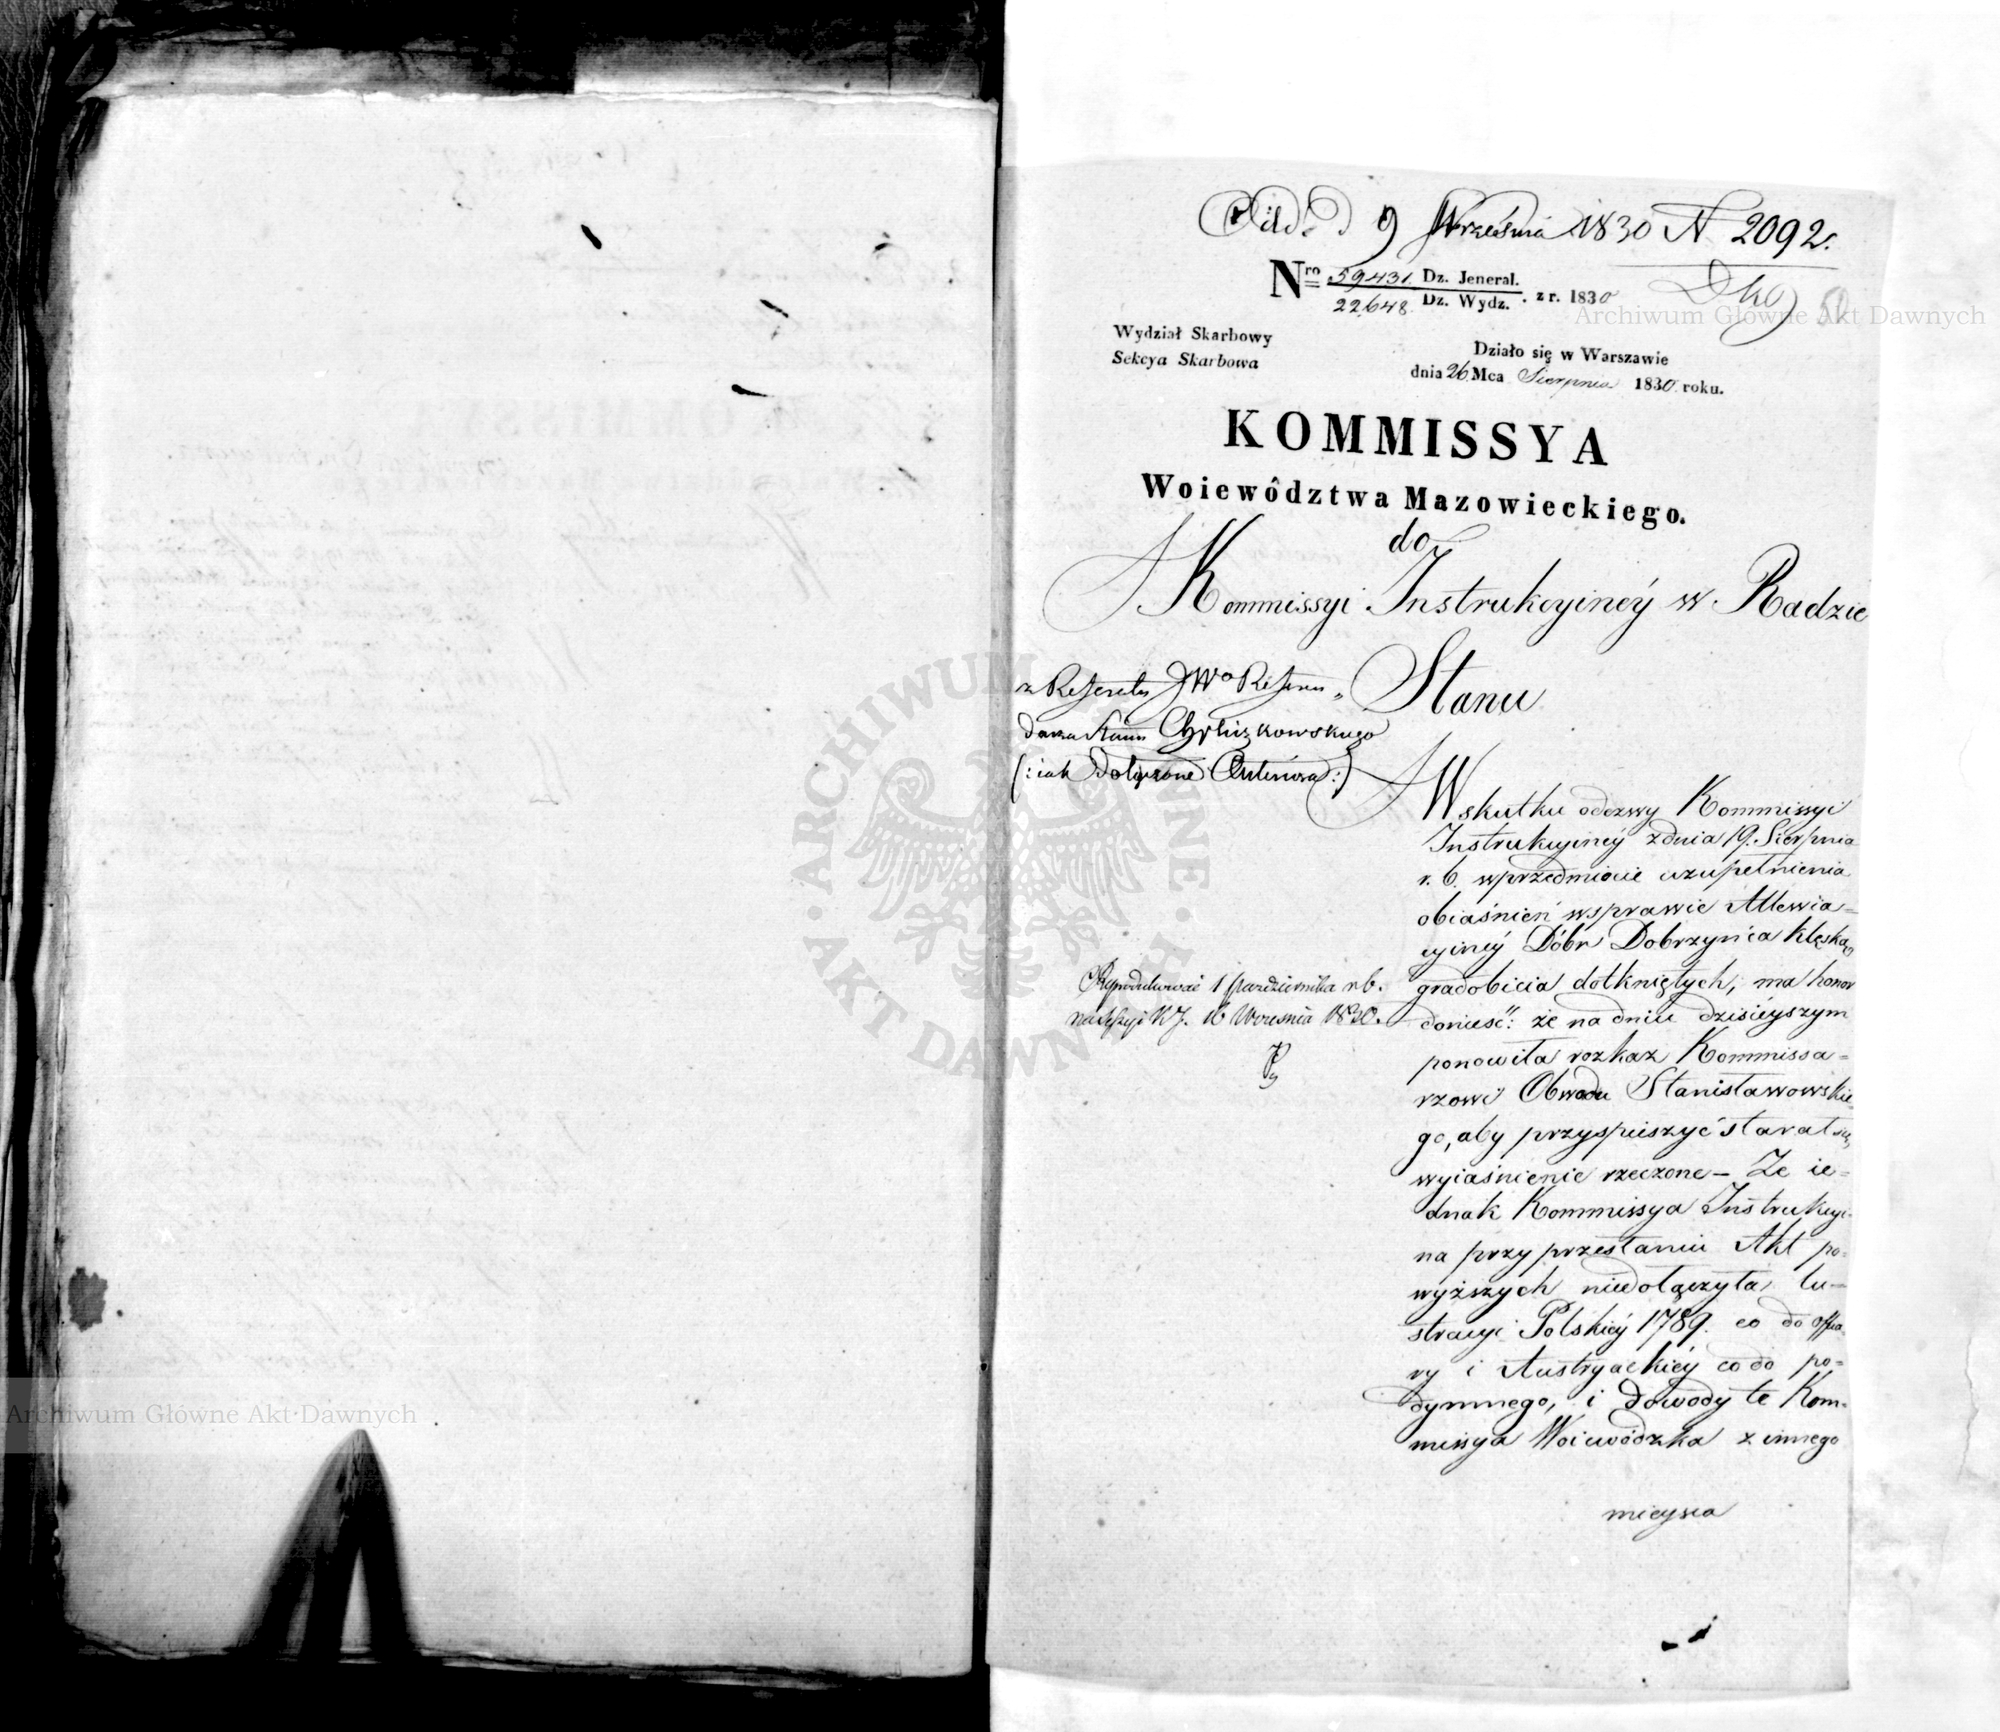 9 Września 1830 N 2092.
Nro 59431 Dz. Jeneral.
22648 Dz. Wydz. z r. 1830
Wydział Skarbowy
Sekcya Skarbowa
Działo się w Warszawie
dnia 26 Mca Sierpnia 1830 roku.
KOMMISSYA
Woiewództwa Mazowieckiego.
do
Kommissyi Instrukcyinéy w Radzie
Stanu
z Referatu JWo Refren„
darza Stanu
(: iak dołączone :)
Reprodukować 1 Października r.b.
na Sessyi K.J. 16 Września 1830.
Wskutku odezwy Kommissyi
Instrukcyinéy z dnia 19. Sierpnia
r. b. wprzedmiocie uzupełnienia
obiaśnień wsprawie Allewia=
cyinéy Dóbr Dobrzyńca klęską
gradobicia dotkniętych, ma honor
donieść: że na dniu dzisiéyszym
ponowiła rozkaz Kommissa=
rzowi Obwodu Stanisławowskie=
go, aby przyspieszyć starał się,
wyiaśnienie rzeczone – Że ie=
dnak Kommissya Instrukcyi=
na przy przesłaniu Akt po=
wyższych niedołączyła lu=
stracyi Polskiéy 1789. co do offia=
ry i Austryackiéy co do po=
dymnego, i dowody te Kom=
missya Woiewódzka z innego
mieysca
ARCHIWUM GŁÓWNE AKT DAWNYCH
Archiwum Główne Akt Dawnych
Archiwum Główne Akt Dawnych